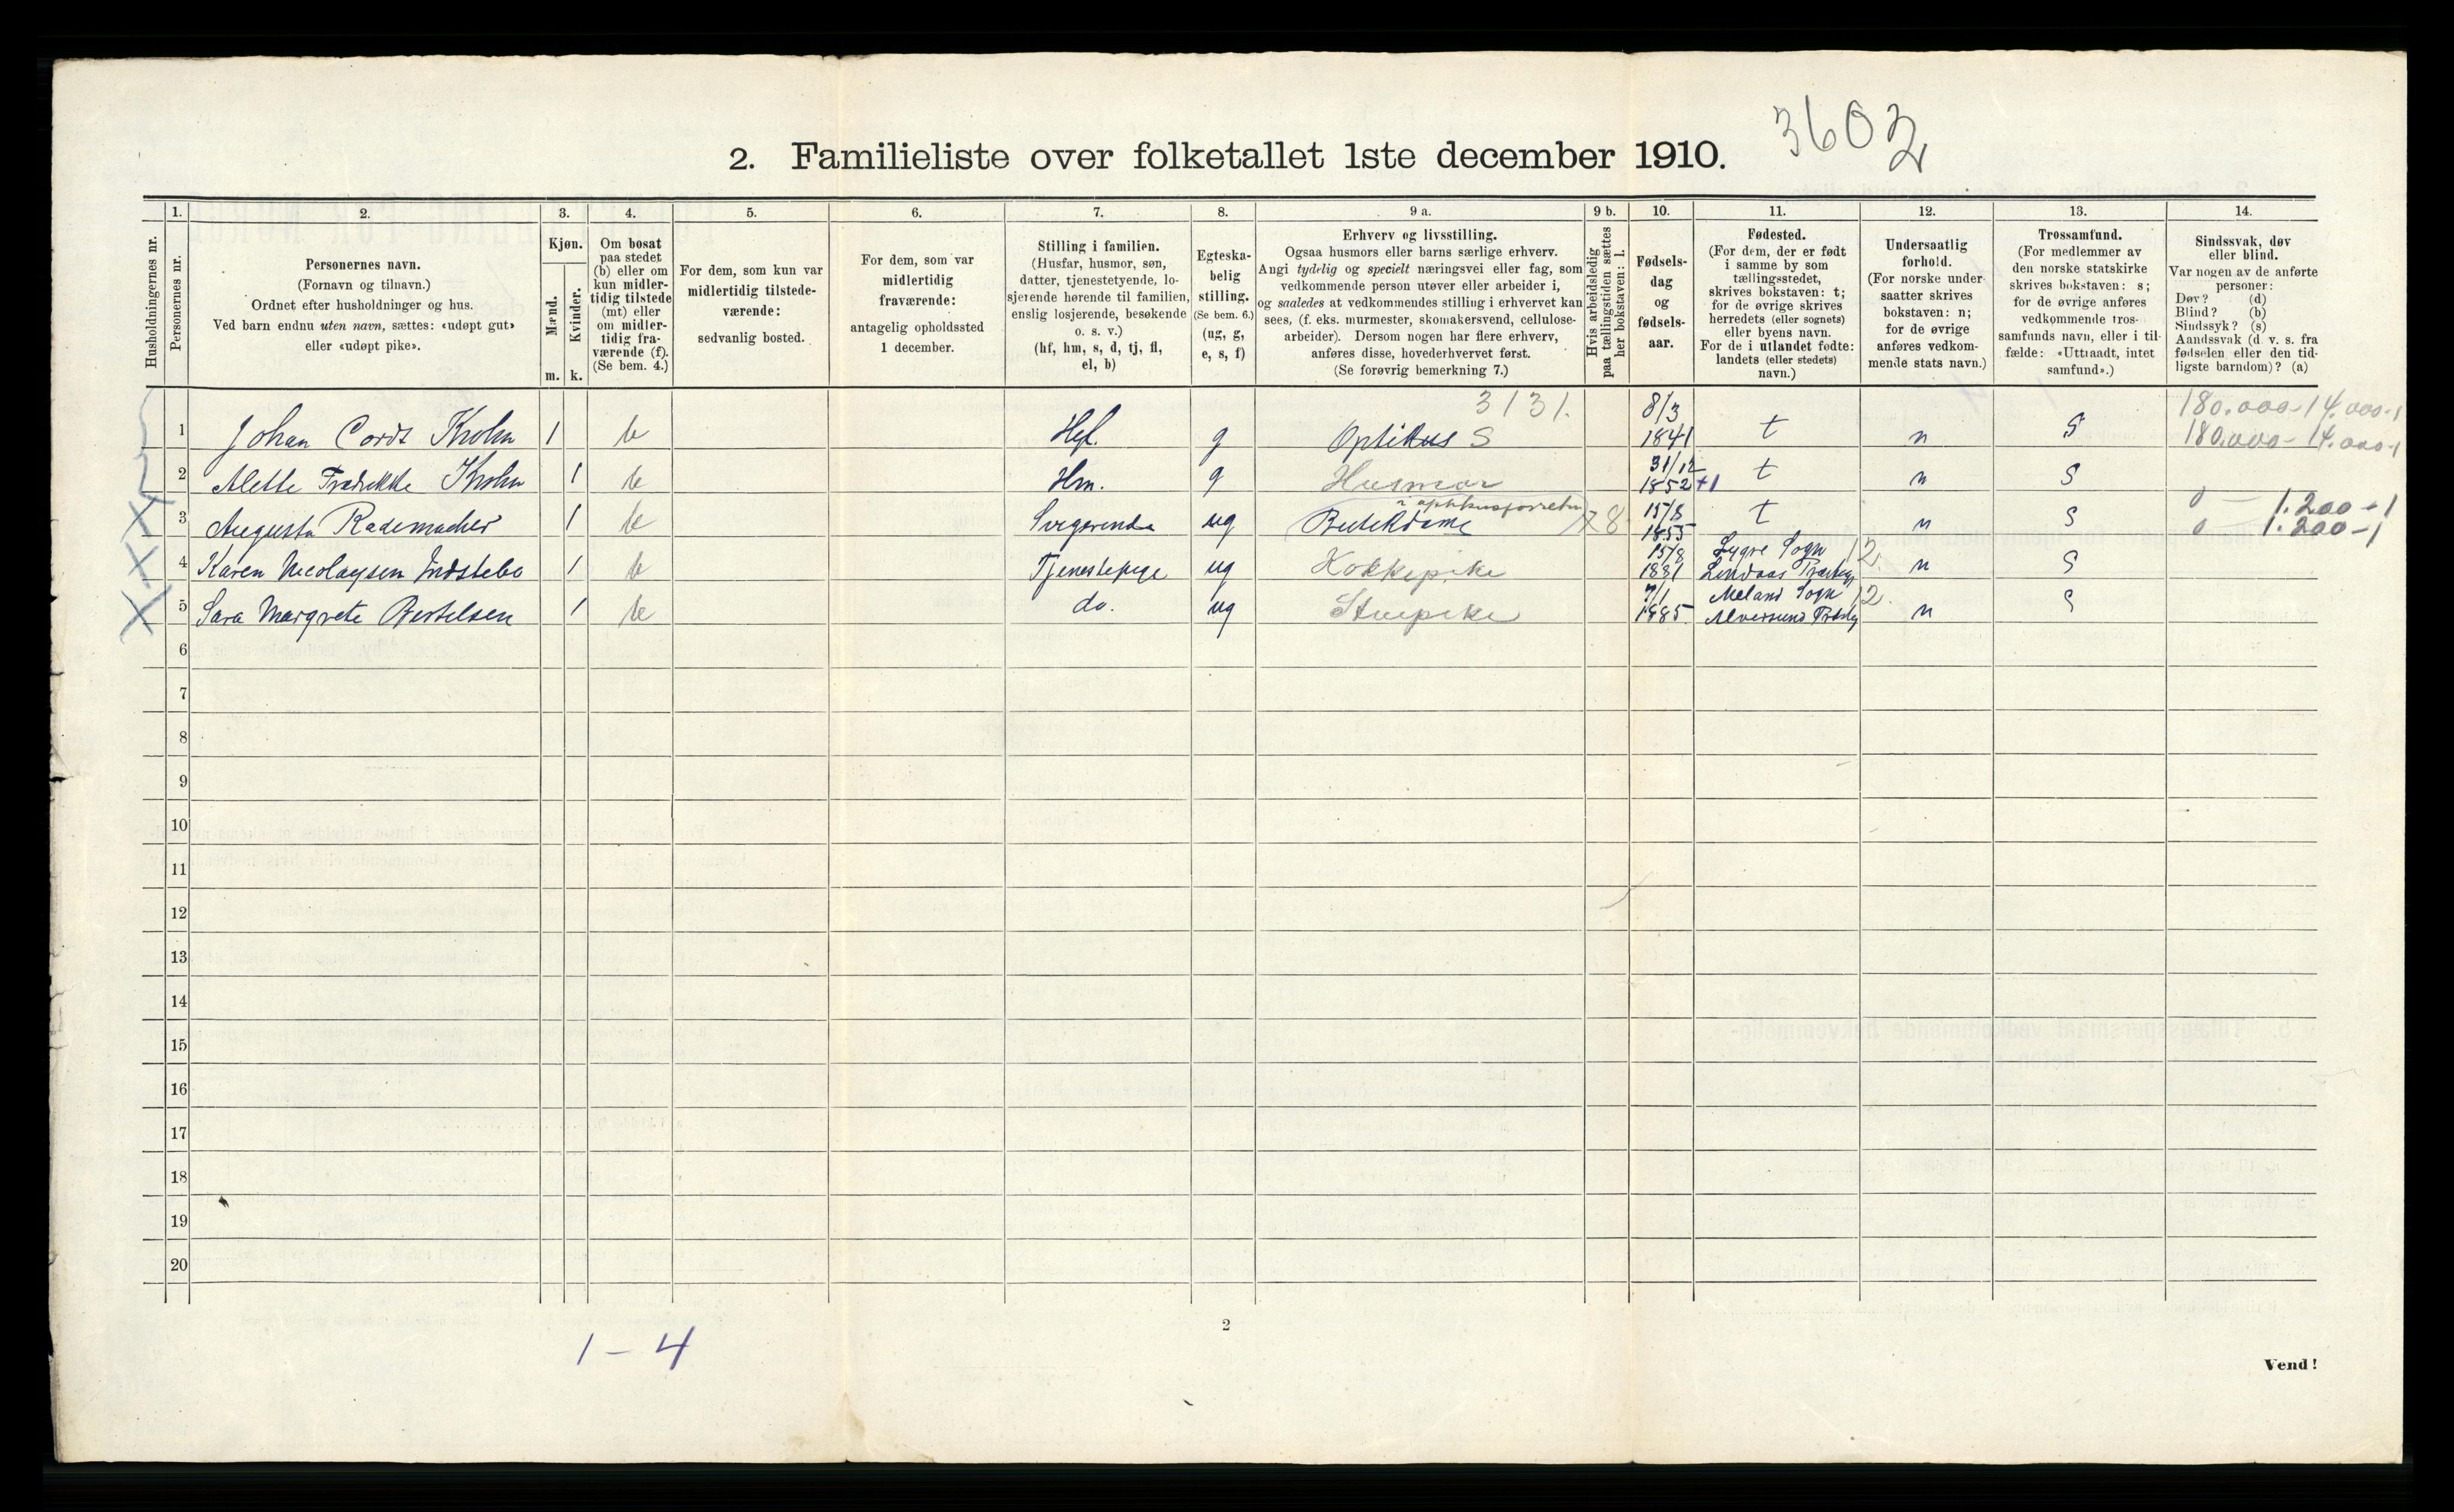 3602
2. Familieliste over folketallet 1ste december 1910.
1. 2. 3. 4. 5. 6. 7. 8. 9 a. 9 b. 10. 11. 12. 13. 14.
Husholdningernes nr.
Personernes nr.
Personernes navn.
(Fornavn og tilnavn.)
Ordnet efter husholdninger og hus.
Ved barn endnu uten navn, sættes: «udøpt gut»
eller «udøpt pike».
Kjøn.
Mænd.
Kvinder.
m. k.
Om bosat
paa stedet
(b) eller om
kun midler-
tidig tilstede
(mt) eller
om midler-
tidig fra-
værende (f).
(Se bem. 4.)
For dem, som kun var
midlertidig tilstede-
værende:
sedvanlig bosted.
For dem, som var
midlertidig
fraværende:
antagelig opholdssted
1 december.
Stilling i familien.
(Husfar, husmor, søn,
datter, tjenestetyende, lo-
sjerende hørende til familien,
enslig losjerende, besøkende
o. s. v.)
(hf, hm, s, d, tj, fl,
el, b)
Egteska-
belig
stilling.
(Se bem. 6.)
(ug, g,
e, s, f)
Erhverv og livsstilling.
Ogsaa husmors eller barns særlige erhverv.
Angi tydelig og specielt næringsvei eller fag, som
vedkommende person utøver eller arbeider i,
og saaledes at vedkommendes stilling i erhvervet kan
sees, (f. eks. murmester, skomakersvend, cellulose-
arbeider). Dersom nogen har flere erhverv,
anføres disse, hovederhvervet først.
(Se forøvrig bemerkning 7.)
Hvis arbeidsledig
paa tællingstiden sættes
her bokstaven: l.
Fødsels-
dag
og
fødsels-
aar.
Fødested.
(For dem, der er født
i samme by som
tællingsstedet,
skrives bokstaven: t;
for de øvrige skrives
herredets (eller sognets)
eller byens navn.
For de i utlandet fødte:
landets (eller stedets)
navn.)
Undersaatlig
forhold.
(For norske under-
saatter skrives
bokstaven: n;
for de øvrige
anføres vedkom-
mende stats navn.)
Trossamfund.
(For medlemmer av
den norske statskirke
skrives bokstaven: s;
for de øvrige anføres
vedkommende tros-
samfunds navn, eller i til-
fælde: «Uttraadt, intet
samfund».)
Sindssvak, døv
eller blind.
Var nogen av de anførte
personer:
Døv? (d)
Blind? (b)
Sindssyk? (s)
Aandssvak (d. v. s. fra
fødselen eller den tid-
ligste barndom)? (a)
3131. 8/3 180.000-14.000-1
1 Johan Cords Krohn 1 b Hf. g Optikus S 1841 t n S 180.000-14.000-1
31/12
2 Alette Fredrikke Krohn 1 b Hm. g Husmor 1852 +1 t n S
15/8 0 - 1.200-1
3 Augusta Rademacher 1 b Svigerinde ug Butikdame X8 1855 t n S 0 - 1.200-1
15/8 Lygre Sogn 12.
4 Karen Nicolaysen Indstebo 1 b Tjenestepige ug Kokkepike 1881 Lindaas Præstegj n S
7/1 Meland Sogn 12.
5 Sara Margrete Bertelsen 1 b do. ug Stuepike 1885 Alversund Præstegj n S
6
7
8
9
10
11
12
13
14
15
16
17
18
19
20
1 - 4
2
Vend!